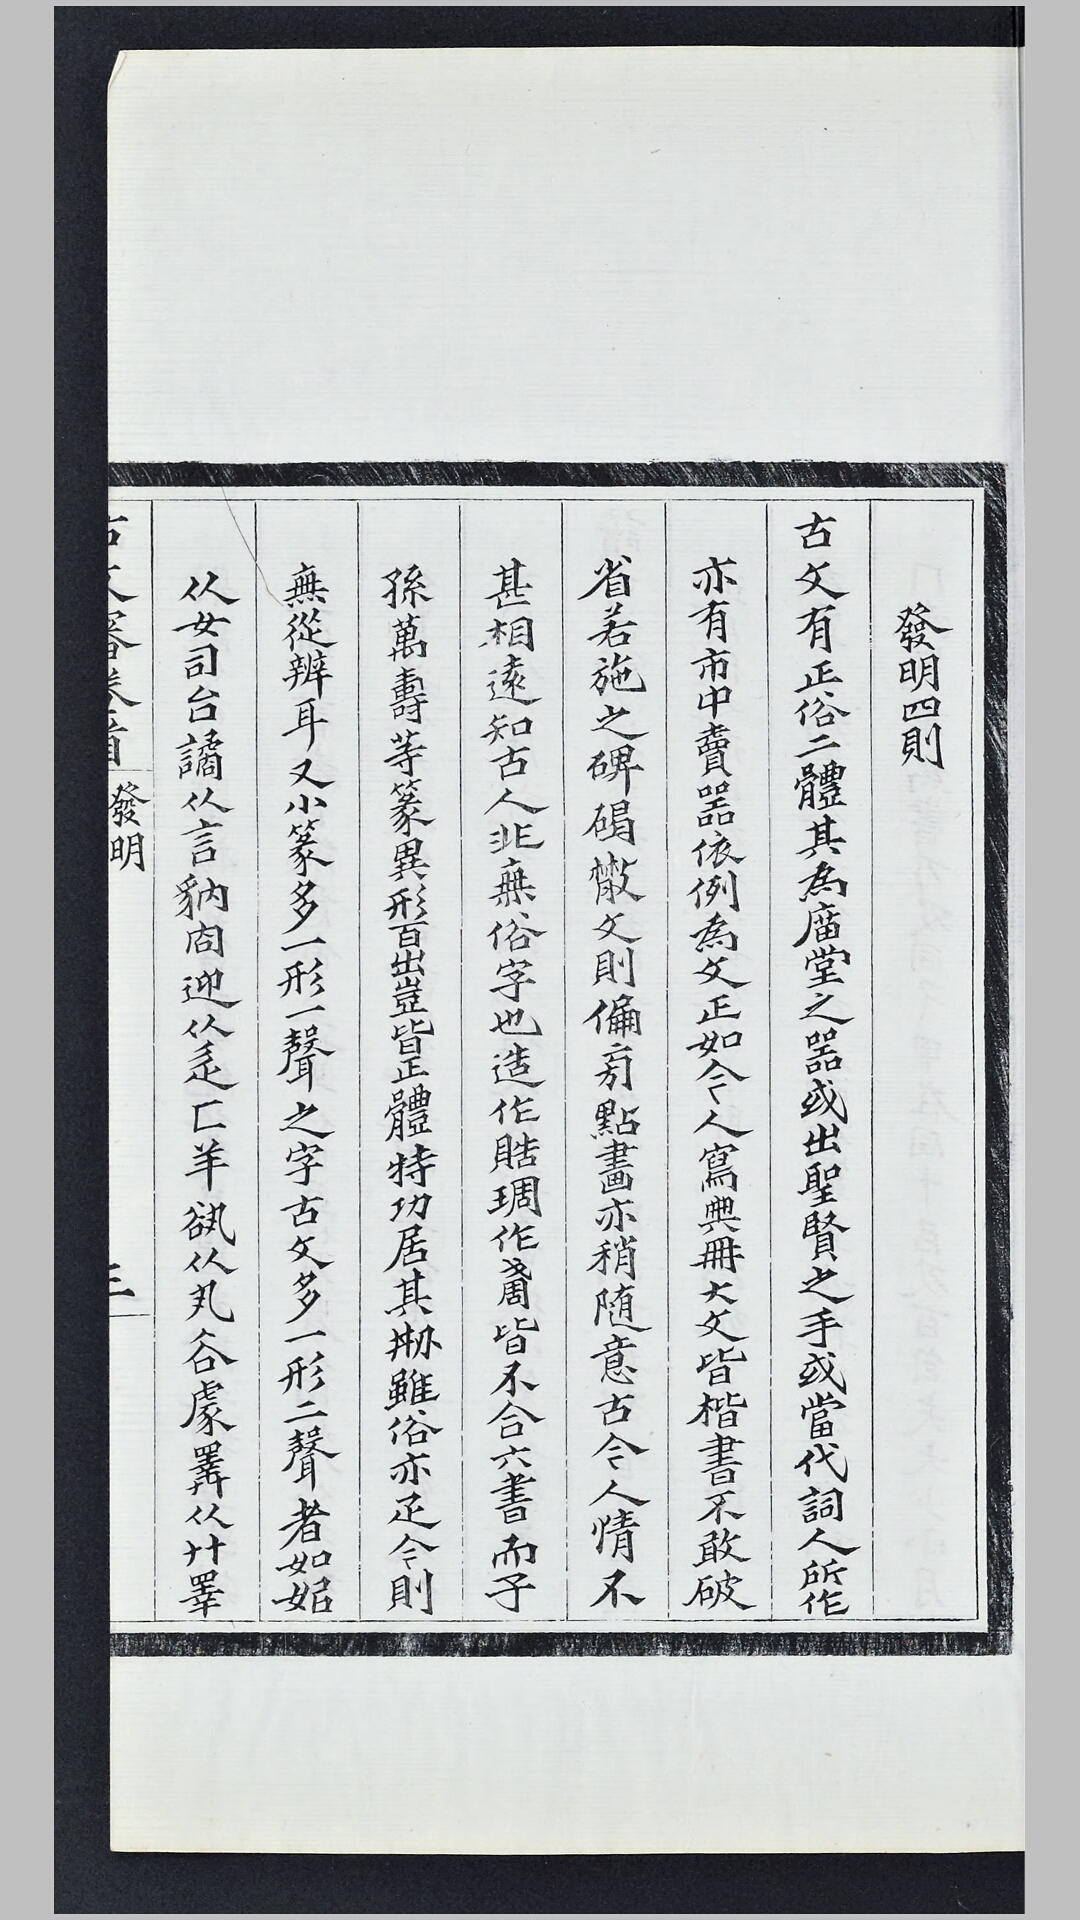 發明四則
古文有正俗二體其為廟堂之器或出聖賢之手或當代詞人所作
亦有市中賣器依例為文正如今人寫典冊大文皆楷書不敢破
省若施之碑碣散文則偏旁點畫亦稍随意古今人情不
甚相遠知古人非無俗字也造作賠琱作皆不合六書而子
孫萬壽等篆異形百出豈皆正體特功居其雖俗亦足令則
無從辨耳又小篆多一形一聲之字古文多一形二聲者如㚸
从女司台譎从言豽㕯迎从辵匚羊从丮谷處从廾睪
古文審卷首
發明
三